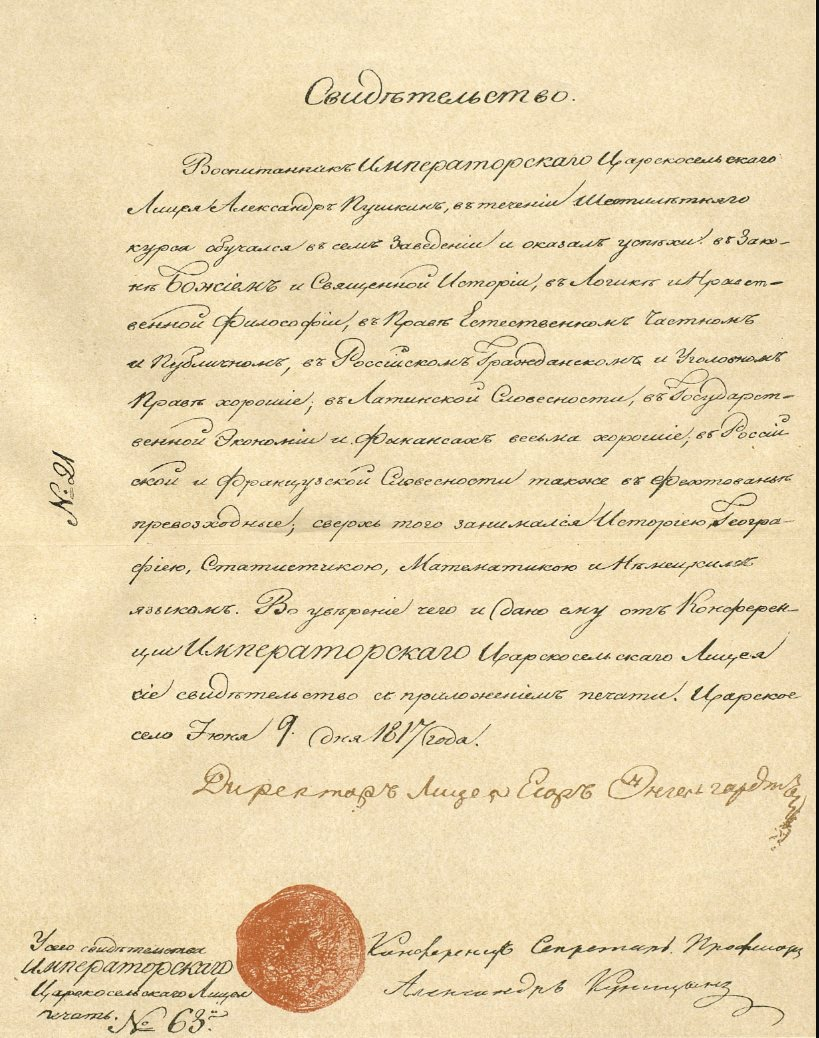 Свидѣтельство.
Воспитанникъ Императорскаго Царскосельскаго
Лицея Александръ Пушкинъ, въ теченіи шестилѣтняго
курса обучался въ семъ заведеніи и оказалъ успѣхи: въ Зако-
нѣ Божіемъ и Священной Исторіи, въ Логикѣ и Нравст-
венной Философіи, въ Правѣ Естественномъ Частномъ
и Публичномъ, въ Россійскомъ Гражданскомъ и Уголовномъ
Правѣ хорошіе; въ Латинской Словесности, въ Государст-
венной Экономіи и Финансахъ весьма хорошіе, въ Россій
ской и Французской Словесности также въ Фехтованьѣ
превозходные; сверхъ того занимался Исторіею Геогра-
фіею, Статистикою, Математикою и Нѣмецкимъ
языкомъ. Во увѣреніе чего и дано ему отъ Конферен-
ціи Императорскаго Царскосельскаго Лицея
сіе свидѣтельство съ приложеніемъ печати. Царское
село Іюня 9. дня 1817 года.
Директоръ Лицея Егоръ Энгельгардтъ
№ 21
У сего свидѣтельства
Императорскаго
Царскосельскаго Лицея
печать. № 63.
Конференцъ Секретарь Профессоръ
Александръ Куницынъ